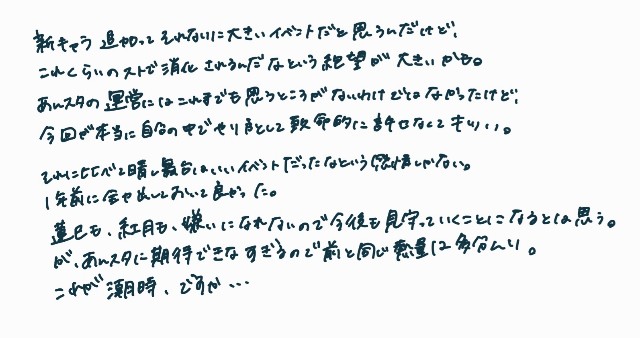 新キャラ追加ってそれなりに大きいイベントだと思うんだけど、
これくらいのストで消化されるんだなという絶望が大きいかも。
あんスタの運営にはこれまでも思うところがないわけではなかったけど、
今回が本当に自分の中でやり方として致命的に許せなくてキツい。
それに比べて晴れ舞台はいいイベントだったなという感情しかない。
1年前に全やめしておいて良かった。
蓮巳も、紅月も、嫌いになれないので今後も見守っていくことになるとは思う。
が、あんスタに期待できなすぎるので前と同じ熱量は多分ムリ。
これが潮時、ですか…